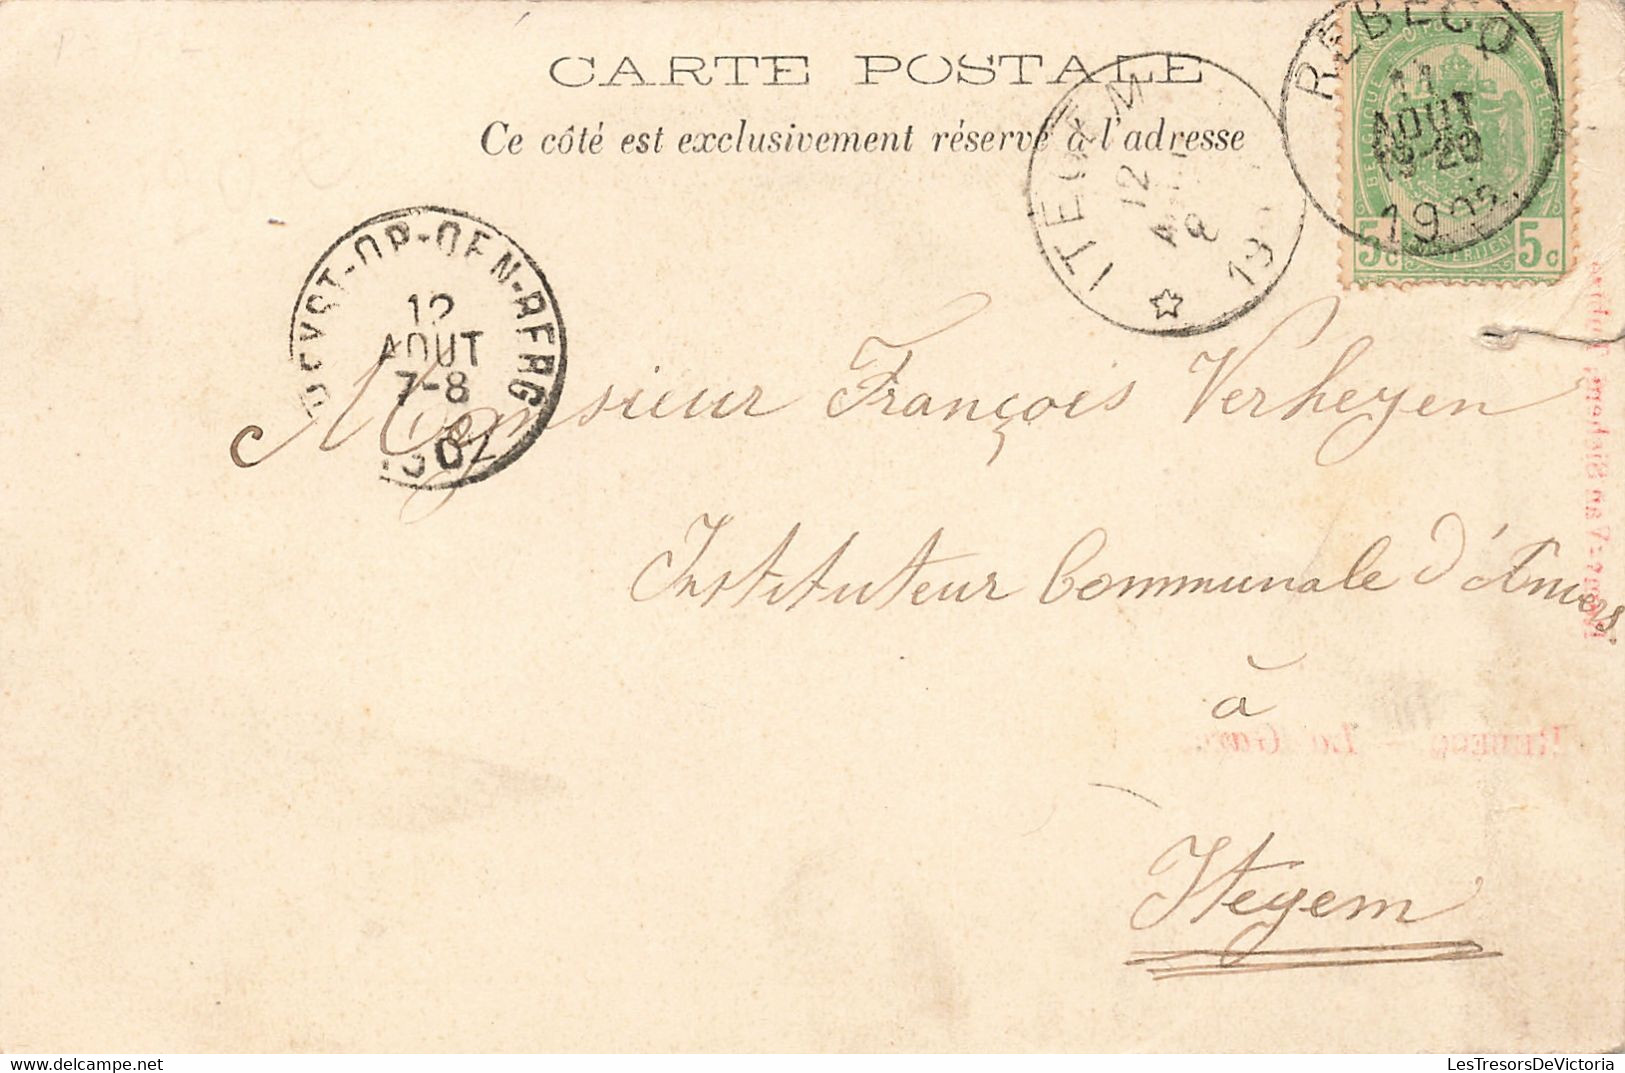 CARTE POSTALE
Ce côté est exclusivement réservé à l'adresse
REBECQ
11
AOUT
19-20
BELGIQUE
5c 5c
ITEGEM
12
8
19
HEYST-OP-DEN-BERG
12
AOUT
7-8
Monsieur François Verheyen
Instituteur Communale d'Anvers
à
REBECQ – La Gare
Itegem
LesTresorsDeVictoria